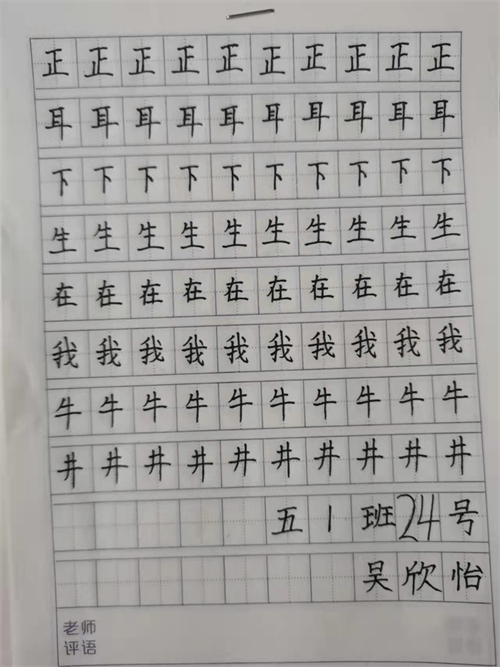 正正正正正正正正正正
耳耳耳耳耳耳耳耳耳耳
下下下下下下下下下下
生生生生生生生生生生
在在在在在在在在在在
我我我我我我我我我我
牛牛牛牛牛牛牛牛牛牛
井井井井井井井井井井
五1班24号
吴欣怡
老师
评语